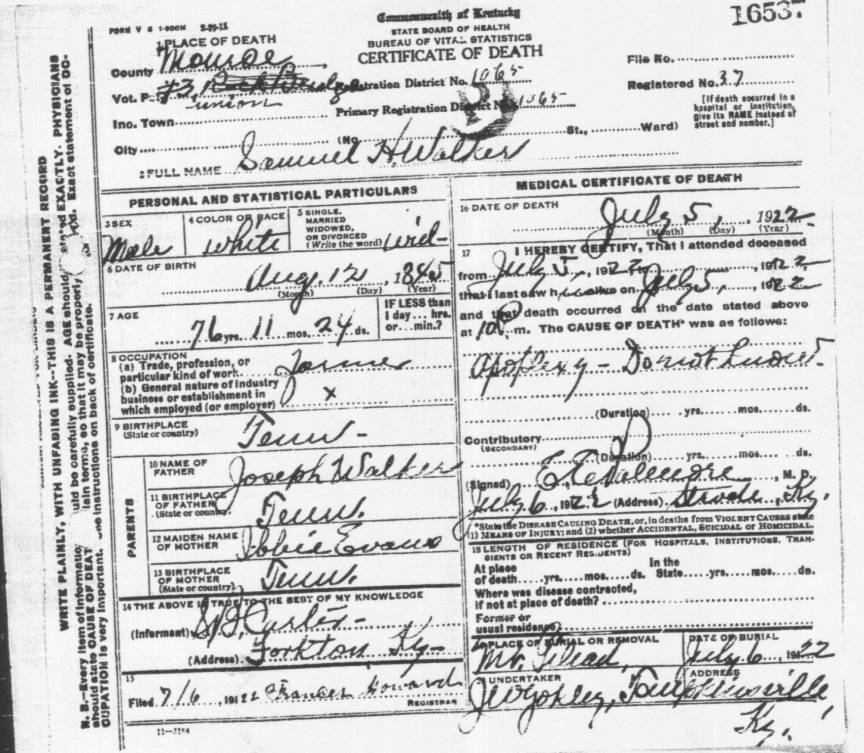 1653
FORM V S 1-500M 2-29-12
Commonwealth of Kentucky
STATE BOARD OF HEALTH
BUREAU OF VITAL STATISTICS
CERTIFICATE OF DEATH
1 PLACE OF DEATH
County Monroe
Vot. P #3, Registration District No. 1065
union
Inc. Town Primary Registration District No. 1065
City (No. St., Ward)
File No.
Registered No. 37
[If death occurred in a
hospital or institution,
give its NAME instead of
street and number.]
2 FULL NAME Samuel H. Walker
PERSONAL AND STATISTICAL PARTICULARS
3 SEX
Male
4 COLOR OR RACE
White
5 SINGLE,
MARRIED
WIDOWED,
OR DIVORCED
(Write the word) wid-
6 DATE OF BIRTH
Aug. 12, 1845
(Month) (Day) (Year)
7 AGE
76 yrs. 11 mos. 24 ds.
IF LESS than
1 day... hrs.
or... min.?
8 OCCUPATION
(a) Trade, profession, or
particular kind of work Farmer
(b) General nature of industry
business or establishment in
which employed (or employer) x
9 BIRTHPLACE
(State or country) Tenn-
PARENTS
10 NAME OF
FATHER Joseph Walker
11 BIRTHPLACE
OF FATHER
(State or country) Tenn.
12 MAIDEN NAME
OF MOTHER Evans
13 BIRTHPLACE
OF MOTHER
(State or country) Tenn.
14 THE ABOVE IS TRUE TO THE BEST OF MY KNOWLEDGE
(Informant) Carter
(Address) Forkton Ky-
15
Filed 7/6, 1922 Frances Howard
REGISTRAR
11-3184
MEDICAL CERTIFICATE OF DEATH
16 DATE OF DEATH
July 5, 1922
(Month) (Day) (Year)
17 I HEREBY CERTIFY, That I attended deceased
from July 5, 1922, 1922,
that I last saw h alive on July 5, 1922
and that death occurred on the date stated above
at m. The CAUSE OF DEATH* was as follows:
Apoplexy -
(Duration) yrs. mos. ds.
Contributory
(SECONDARY)
(Duration) yrs. mos. ds.
(Signed) E.E. , M. D.
July 6, 1922 (Address) , Ky.
*State the DISEASE CAUSING DEATH, or, in deaths from VIOLENT CAUSES state
(1) MEANS OF INJURY; and (2) whether ACCIDENTAL, SUICIDAL or HOMICIDAL.
18 LENGTH OF RESIDENCE (FOR HOSPITALS, INSTITUTIONS, TRAN-
SIENTS OR RECENT RESIDENTS)
At place In the
of death yrs. mos. ds. State yrs. mos. ds.
Where was disease contracted,
if not at place of death?
Former or
usual residence
PLACE OF BURIAL OR REMOVAL
Mt. Gilead,
DATE OF BURIAL
July 6, 1922
UNDERTAKER
ADDRESS
Tompkinsville
Ky.
WRITE PLAINLY, WITH UNFADING INK—THIS IS A PERMANENT RECORD